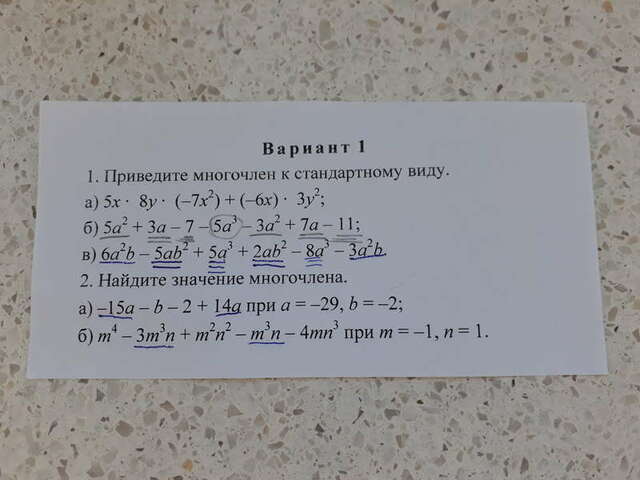 Вариант 1
1. Приведите многочлен к стандартному виду.
а) 5x · 8y · (−7x²) + (−6x) · 3y²;
б) 5a² + 3a − 7 − 5a³ − 3a² + 7a − 11;
в) 6a²b − 5ab² + 5a³ + 2ab² − 8a³ − 3a²b.
2. Найдите значение многочлена.
а) −15a − b − 2 + 14a при a = −29, b = −2;
б) m⁴ − 3m³n + m²n² − m³n − 4mn³ при m = −1, n = 1.